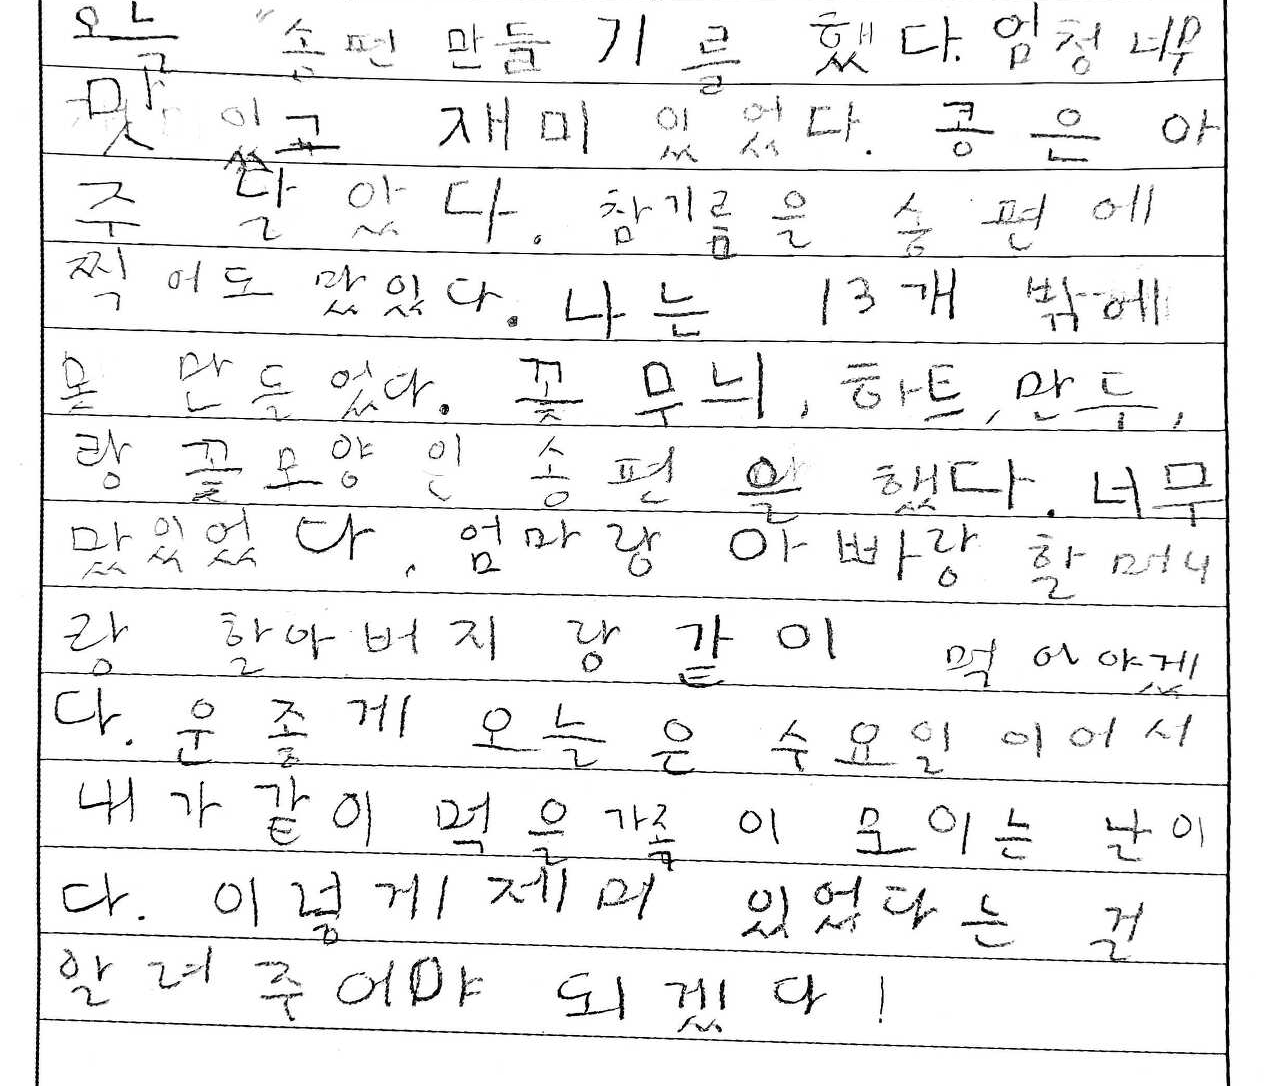 오늘 송편 만들기를 했다. 엄청 너무
맛있고 재미 있었다. 콩은 아
주 달았다. 참기름을 송편에
찍어도 맜있다. 나는 13개 밖에
못 만들었다. 꽃 무늬, 하트, 만두,
랑 꽃모양인 송편을 했다. 너무
맜있었다. 엄마랑 아빠랑 할머니
랑 할아버지랑 같이 먹어야겠
다. 운 좋게 오늘은 수요일이어서
내가 같이 먹을 가족이 모이는 날이
다. 이렇게 제미 있었다는 걸
알려주어야 되겠다!